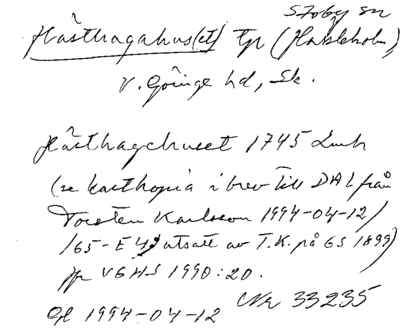 Stoby sn
Hästhagahus(et) tp (Hässleholm),
V. Göinge hd, Sk.
Hästhagehuset 1745 Lmh
(se kartkopia i brev till DAL från
Torsten Karlsson 1994-04-12/
/65-E 4, utsatt av T.K. på GS 1899)
jfr VGHS 1990:20.
1994-04-12 Nr 33235